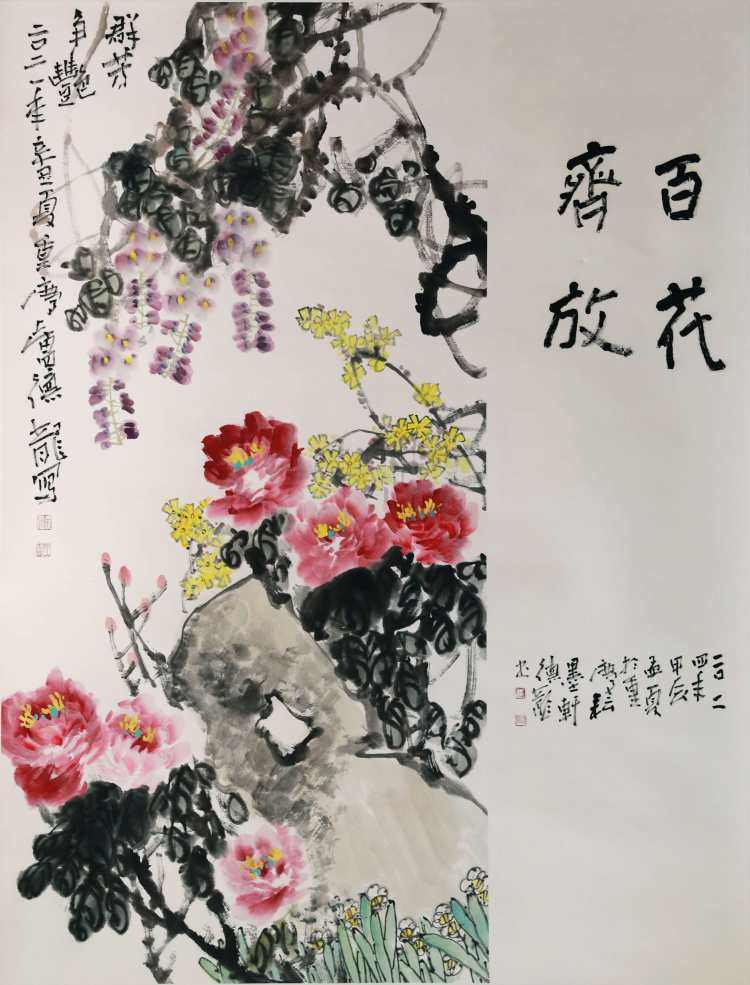 百花
齊放
二〇二
四年
甲辰
孟夏
於重
慶耘
墨軒
德龍
群芳
争艷
二〇二一年辛丑夏重慶黄德龍寫